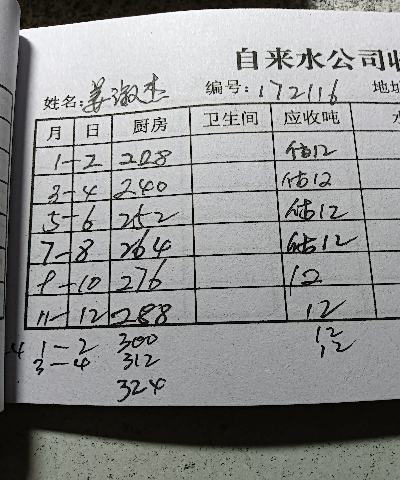 自来水公司收
姓名:姜淑杰 编号:172116 地址
月 日 厨房 卫生间 应收吨 水
1-2 228 估12
3-4 240 估12
5-6 252 估12
7-8 264 估12
9-10 276 12
11-12 288 12
1-2 300 12
3-4 312 12
324